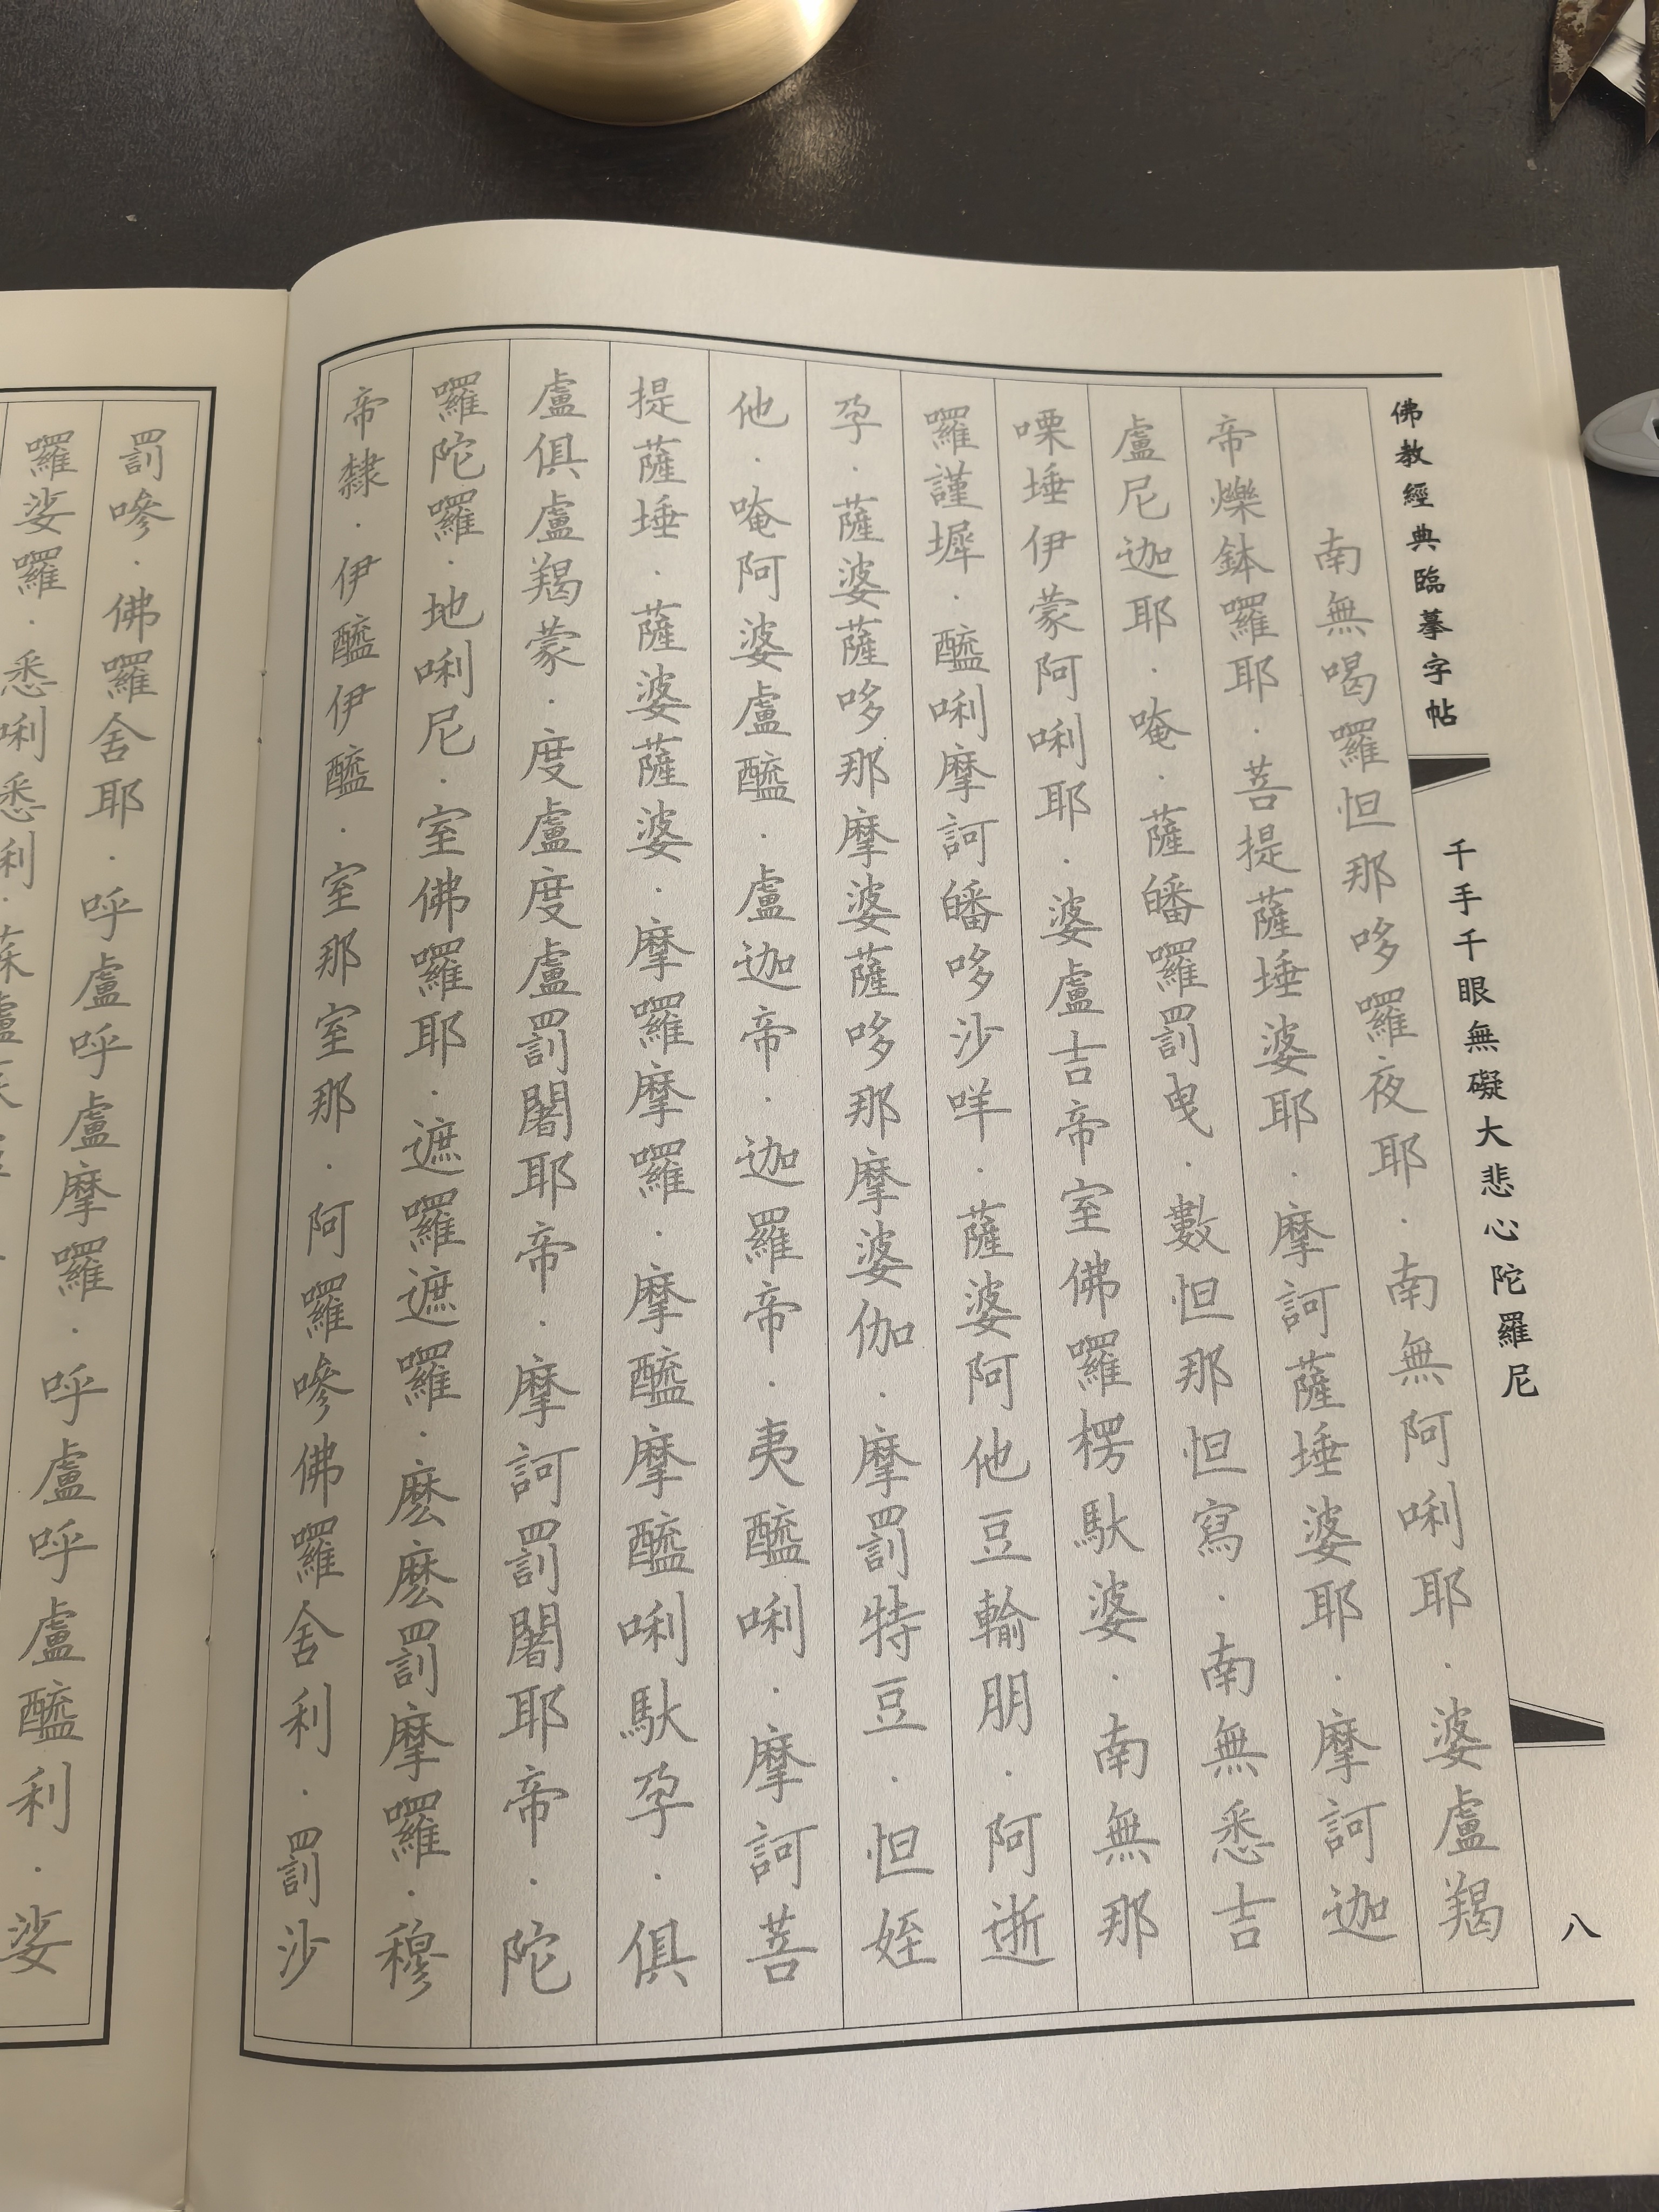 佛教經典臨摹字帖
千手千眼無礙大悲心陀羅尼
八
南無喝囉怛那哆囉夜耶．南無阿唎耶．婆盧羯
帝爍鉢囉耶．菩提薩埵婆耶．摩訶薩埵婆耶．摩訶迦
盧尼迦耶．唵．薩皤囉罰曳．數怛那怛寫．南無悉吉
嘌埵伊蒙阿唎耶．婆盧吉帝室佛囉楞馱婆．南無那
囉謹墀．醯唎摩訶皤哆沙咩．薩婆阿他豆輸朋．阿逝
孕．薩婆薩哆那摩婆薩哆那摩婆伽．摩罰特豆．怛姪
他．唵阿婆盧醯．盧迦帝．迦羅帝．夷醯唎．摩訶菩
提薩埵．薩婆薩婆．摩囉摩囉．摩醯摩醯唎馱孕．俱
盧俱盧羯蒙．度盧度盧罰闍耶帝．摩訶罰闍耶帝．陀
囉陀囉．地唎尼．室佛囉耶．遮囉遮囉．麼麼罰摩囉．穆
帝隸．伊醯伊醯．室那室那．阿囉嘇佛囉舍利．罰沙
罰嘇．佛囉舍耶．呼盧呼盧摩囉．呼盧呼盧醯利．娑
囉娑囉．悉唎悉利．